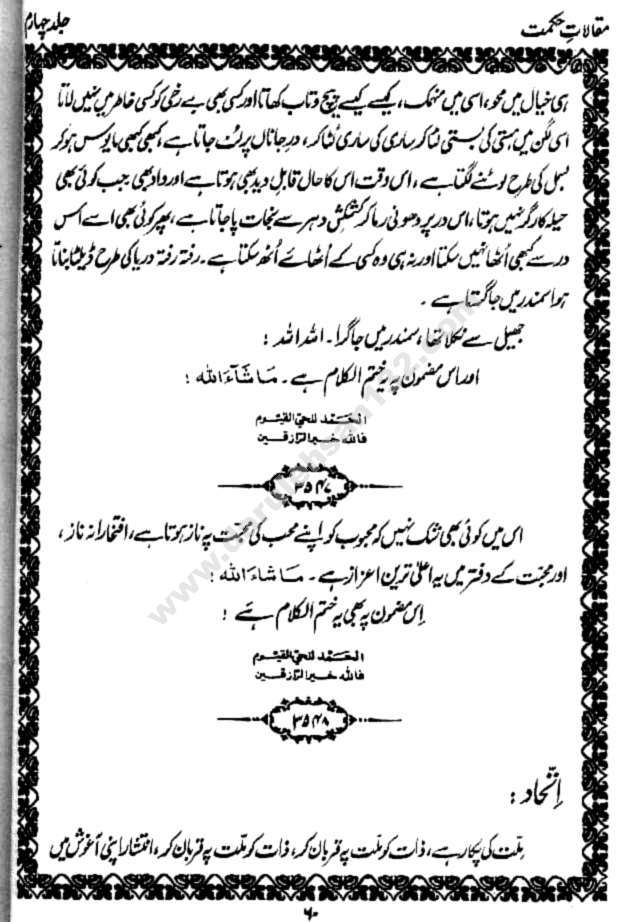 مقالاتِ حکمت
جلد چہارم
ہی خیال میں محو، اسی میں منہمک، کیسے کیسے پیچ و تاب کھاتا اور کسی بھی بے رخی کو کسی خاطر میں نہیں لاتا
اسی لگن میں ہستی کی بستی لٹا کر ساری کی ساری لٹا کر، درِ جاناں پر لٹ جاتا ہے، کبھی کبھی مایوس ہو کر
بسمل کی طرح لوٹنے لگتا ہے، اس وقت اس کا حال قابلِ دید بھی ہوتا ہے اور داد بھی۔ جب کوئی بھی
حیلہ کارگر نہیں ہوتا، اس در پر دھونی رما کر کشمکشِ دہر سے نجات پا جاتا ہے، پھر کوئی بھی اسے اس
در سے کبھی اٹھا نہیں سکتا اور نہ ہی وہ کسی کے اٹھائے اٹھ سکتا ہے۔ رفتہ رفتہ دریا کی طرح ڈیلٹا بناتا
ہوا سمندر میں جا گرتا ہے۔
جھیل سے نکلا تھا، سمندر میں جا گرا۔ اللہ اللہ :
اور اس مضمون پہ یہ ختم الکلام ہے۔ مَا شَآءَ اللّٰه :
الحَمد للحيّ القيّوم
فالله خير الرّازقين
۳۵۴۷
اس میں کوئی بھی شک نہیں کہ محبوب کو اپنے محب کی محبت پہ ناز ہوتا ہے، افتخارانہ ناز،
اور محبت کے دفتر میں یہ اعلیٰ ترین اعزاز ہے۔ مَا شَاءَ الله :
اِس مضمون پہ بھی یہ ختم الکلام ہے :
الحَمد للحيّ القيّوم
فالله خير الرّازقين
۳۵۴۸
اِتّحاد :
مِلّت کی پکار ہے، ذات کو ملّت پہ قربان کر، ذات کو ملّت پہ قربان کر، انتشار اپنی آغوش میں
۶۰